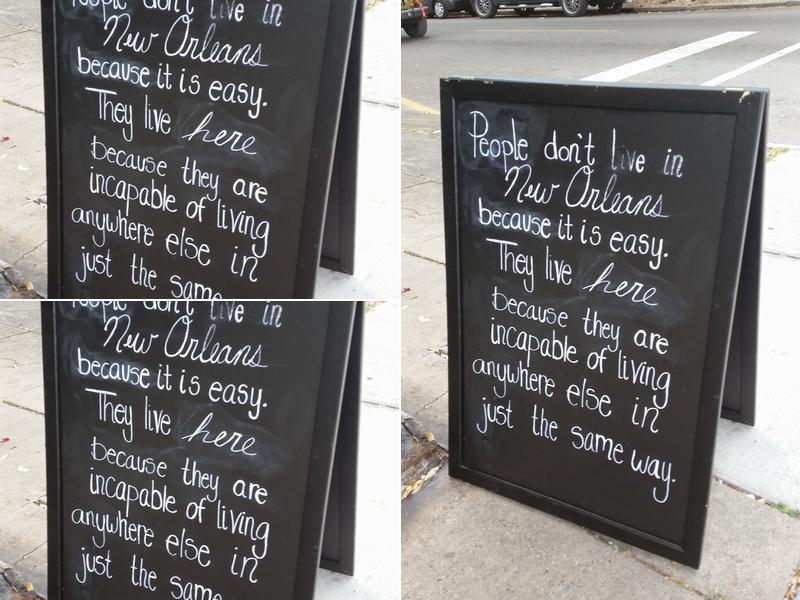 People don't live in
New Orleans
because it is easy.
They live here
because they are
incapable of living
anywhere else in
just the same
People don't live in
New Orleans
because it is easy.
They live here
because they are
incapable of living
anywhere else in
just the same
People don't live in
New Orleans
because it is easy.
They live here
because they are
incapable of living
anywhere else in
just the same way.